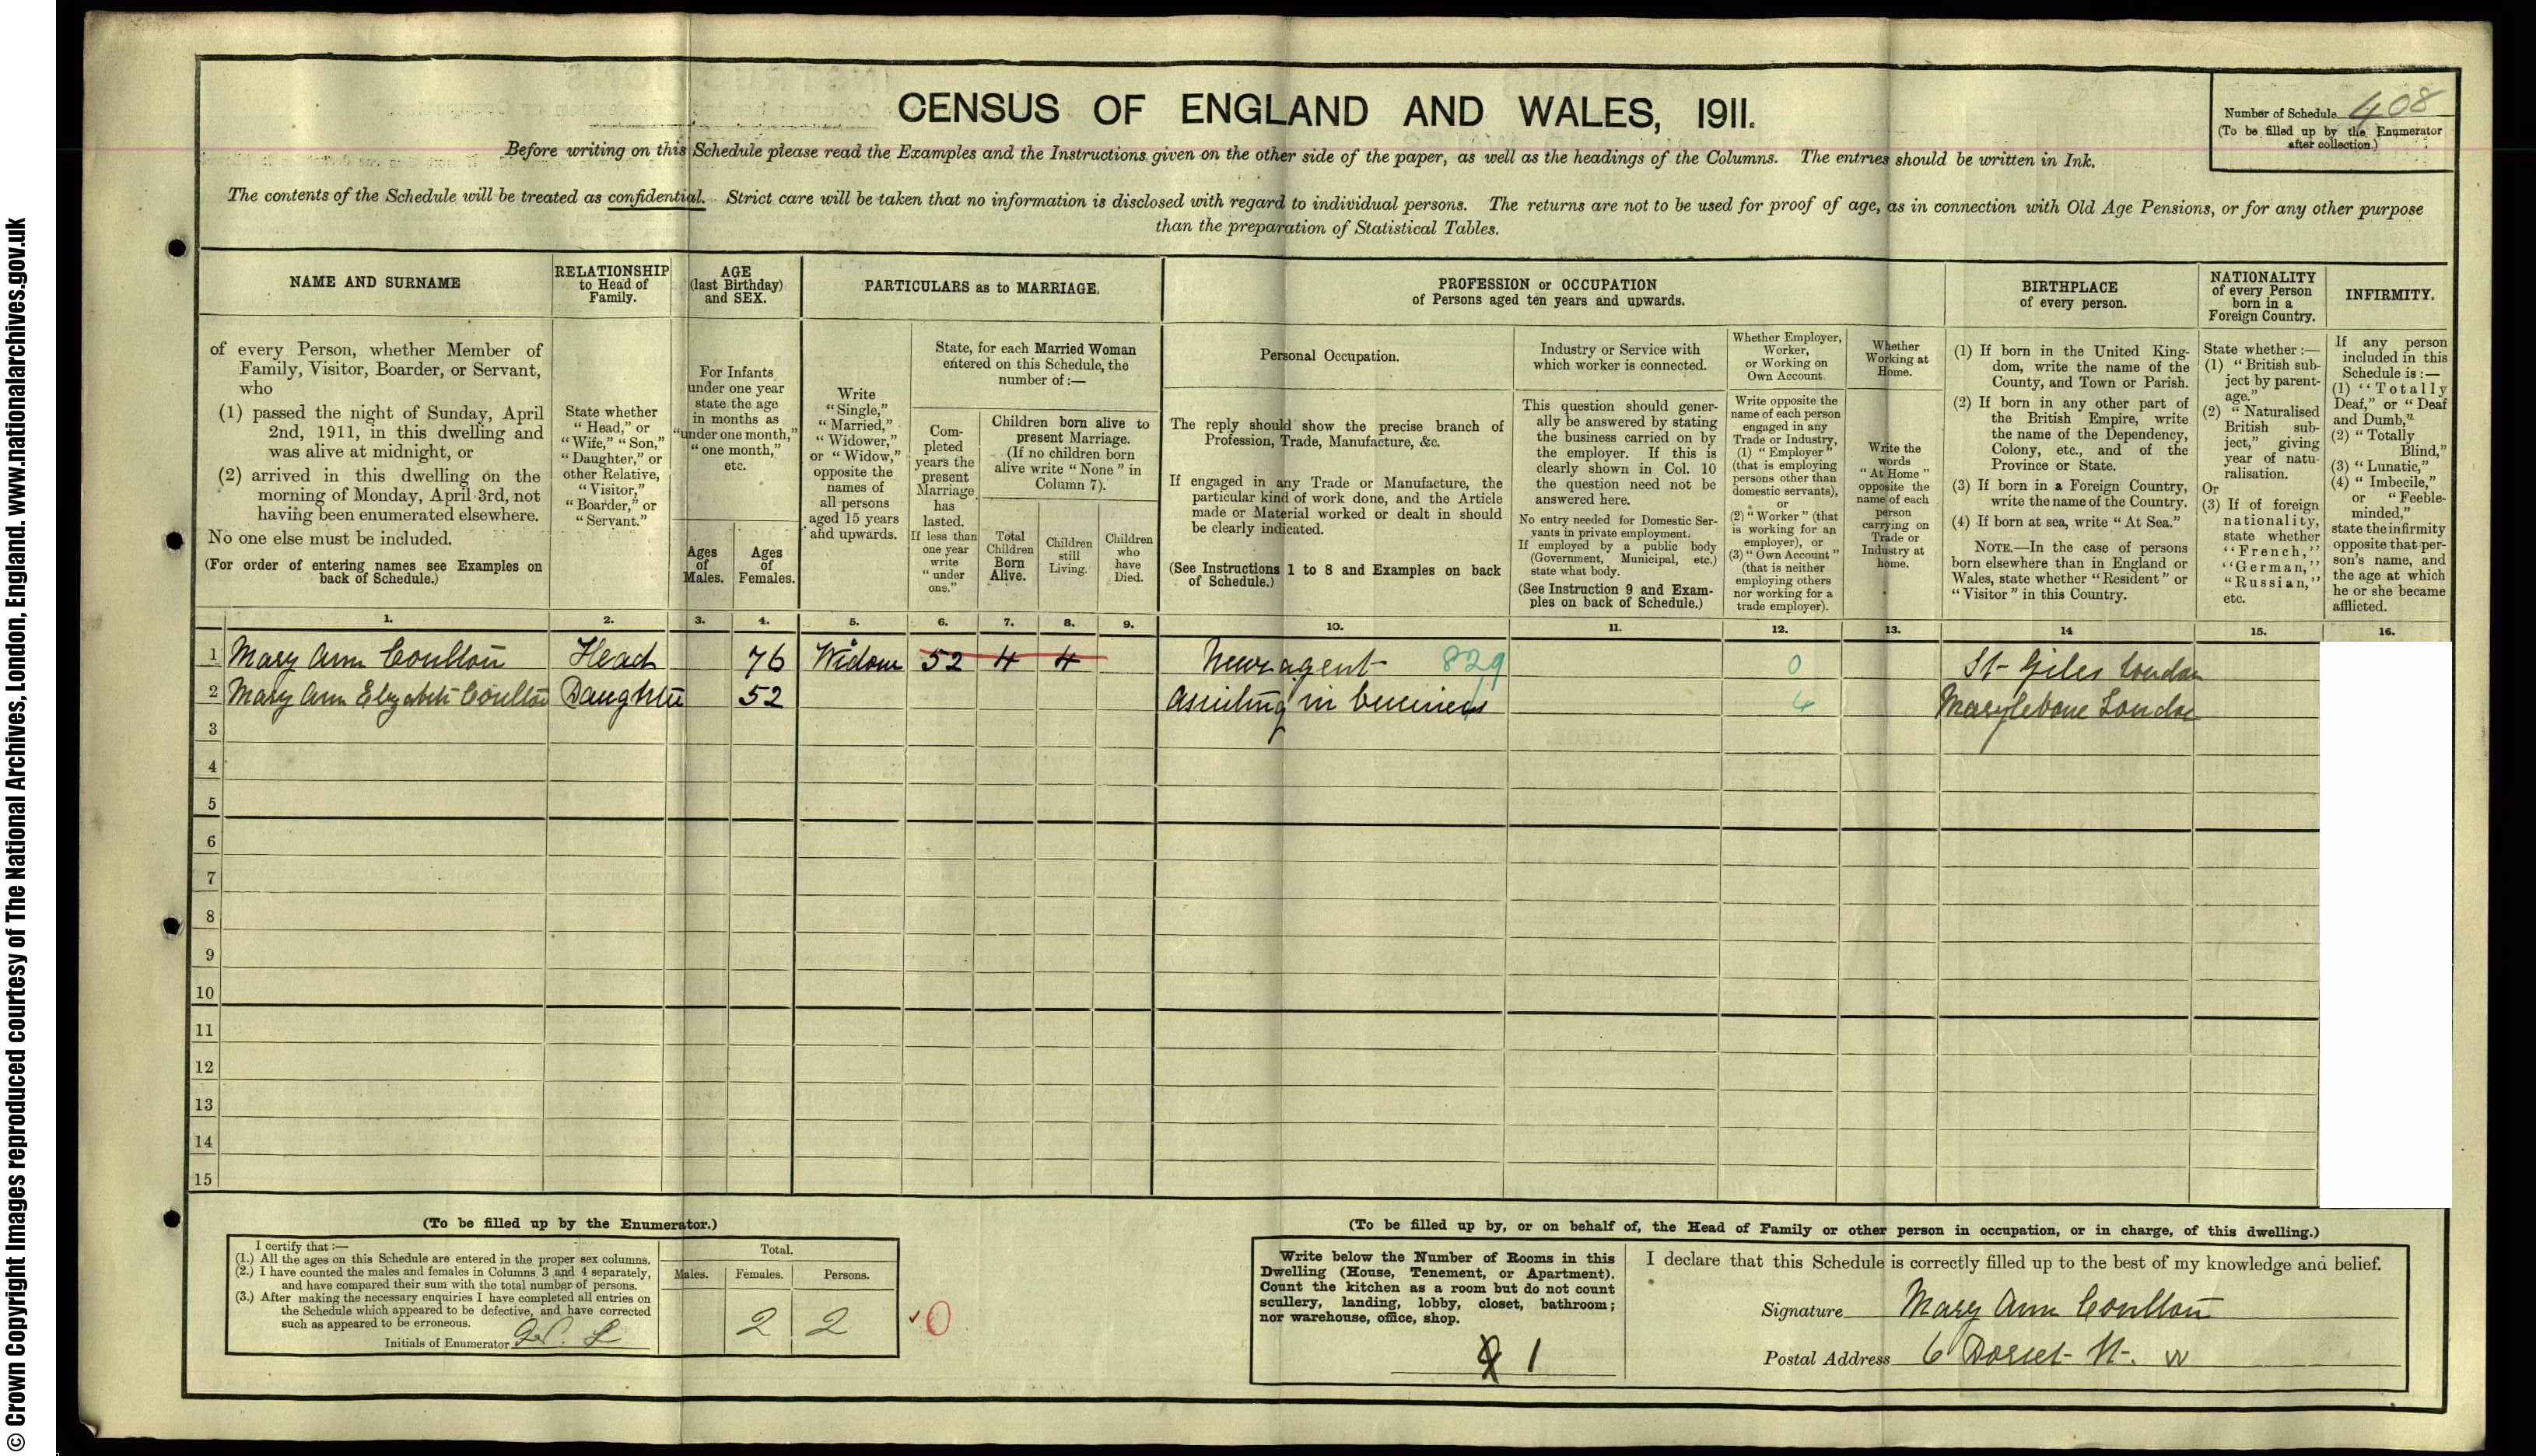 CENSUS OF ENGLAND AND WALES, 1911.
Number of Schedule 408
(To be filled up by the Enumerator
after collection.)
Before writing on this Schedule please read the Examples and the Instructions given on the other side of the paper, as well as the headings of the Columns. The entries should be written in Ink.
The contents of the Schedule will be treated as confidential. Strict care will be taken that no information is disclosed with regard to individual persons. The returns are not to be used for proof of age, as in connection with Old Age Pensions, or for any other purpose
than the preparation of Statistical Tables.
NAME AND SURNAME
of every Person, whether Member of
Family, Visitor, Boarder, or Servant,
who
(1) passed the night of Sunday, April
2nd, 1911, in this dwelling and
was alive at midnight, or
(2) arrived in this dwelling on the
morning of Monday, April 3rd, not
having been enumerated elsewhere.
No one else must be included.
(For order of entering names see Examples on
back of Schedule.)
RELATIONSHIP
to Head of
Family.
State whether
"Head," or
"Wife," "Son,"
"Daughter," or
other Relative,
"Visitor,"
"Boarder," or
"Servant."
AGE
(last Birthday)
and SEX.
For Infants
under one year
state the age
in months as
"under one month,"
"one month,"
etc.
Ages
of
Males.
Ages
of
Females.
PARTICULARS as to MARRIAGE.
Write
"Single,"
"Married,"
"Widower,"
or "Widow,"
opposite the
names of
all persons
aged 15 years
and upwards.
State, for each Married Woman
entered on this Schedule, the
number of :—
Com-
pleted
years the
present
Marriage
has
lasted.
If less than
one year
write
"under
one."
Children born alive to
present Marriage.
(If no children born
alive write "None" in
Column 7).
Total
Children
Born
Alive.
Children
still
Living.
Children
who
have
Died.
PROFESSION or OCCUPATION
of Persons aged ten years and upwards.
Personal Occupation.
The reply should show the precise branch of
Profession, Trade, Manufacture, &c.
If engaged in any Trade or Manufacture, the
particular kind of work done, and the Article
made or Material worked or dealt in should
be clearly indicated.
(See Instructions 1 to 8 and Examples on back
of Schedule.)
Industry or Service with
which worker is connected.
This question should gener-
ally be answered by stating
the business carried on by
the employer. If this is
clearly shown in Col. 10
the question need not be
answered here.
No entry needed for Domestic Ser-
vants in private employment.
If employed by a public body
(Government, Municipal, etc.)
state what body.
(See Instruction 9 and Exam-
ples on back of Schedule.)
Whether Employer,
Worker,
or Working on
Own Account.
Write opposite the
name of each person
engaged in any
Trade or Industry,
(1) "Employer"
(that is employing
persons other than
domestic servants),
or
(2) "Worker" (that
is working for an
employer), or
(3) "Own Account"
(that is neither
employing others
nor working for a
trade employer).
Whether
Working at
Home.
Write the
words
"At Home"
opposite the
name of each
person
carrying on
Trade or
Industry at
home.
BIRTHPLACE
of every person.
(1) If born in the United King-
dom, write the name of the
County, and Town or Parish.
(2) If born in any other part of
the British Empire, write
the name of the Dependency,
Colony, etc., and of the
Province or State.
(3) If born in a Foreign Country,
write the name of the Country.
(4) If born at sea, write "At Sea."
NOTE.—In the case of persons
born elsewhere than in England or
Wales, state whether "Resident" or
"Visitor" in this Country.
NATIONALITY
of every Person
born in a
Foreign Country.
State whether :—
(1) "British sub-
ject by parent-
age."
(2) "Naturalised
British sub-
ject," giving
year of natu-
ralisation.
Or
(3) If of foreign
nationality,
state whether
"French,"
"German,"
"Russian,"
etc.
INFIRMITY.
If any person
included in this
Schedule is :—
(1) "Totally
Deaf," or "Deaf
and Dumb,"
(2) "Totally
Blind,"
(3) "Lunatic,"
(4) "Imbecile,"
or "Feeble-
minded,"
state the infirmity
opposite that per-
son's name, and
the age at which
he or she became
afflicted.
1. 2. 3. 4. 5. 6. 7. 8. 9. 10. 11. 12. 13. 14 15. 16.
1 Mary Ann Coulton Head 76 Widow 52 4 4 Newsagent 829 0 St Giles London
2 Mary Ann Elizabeth Coulton Daughter 52 Assisting in business Marylebone London
3
4
5
6
7
8
9
10
11
12
13
14
15
(To be filled up by the Enumerator.)
I certify that :—
(1.) All the ages on this Schedule are entered in the proper sex columns.
(2.) I have counted the males and females in Columns 3 and 4 separately,
and have compared their sum with the total number of persons.
(3.) After making the necessary enquiries I have completed all entries on
the Schedule which appeared to be defective, and have corrected
such as appeared to be erroneous.
Initials of Enumerator
Total.
Males. Females. Persons.
2 2
0
(To be filled up by, or on behalf of, the Head of Family or other person in occupation, or in charge, of this dwelling.)
Write below the Number of Rooms in this
Dwelling (House, Tenement, or Apartment).
Count the kitchen as a room but do not count
scullery, landing, lobby, closet, bathroom;
nor warehouse, office, shop.
1
I declare that this Schedule is correctly filled up to the best of my knowledge and belief.
Signature Mary Ann Coulton
Postal Address 6 Dorset St. W
© Crown Copyright Images reproduced courtesy of The National Archives, London, England. www.nationalarchives.gov.uk